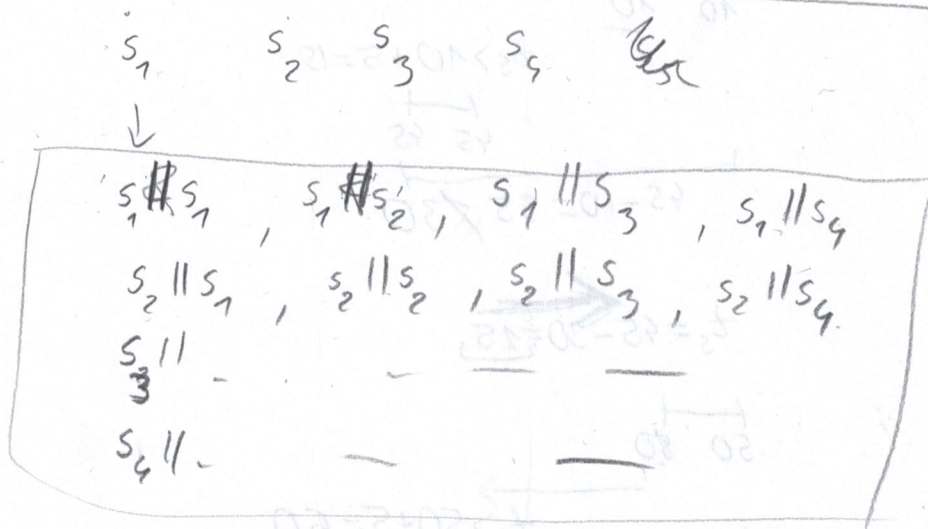 s₁ s₂ s₃ s₄
↓
s₁ || s₁ , s₁ || s₂ , s₁ || s₃ , s₁ || s₄
s₂ || s₁ , s₂ || s₂ , s₂ || s₃ , s₂ || s₄
s₃ || - - — —
s₄ || - — —